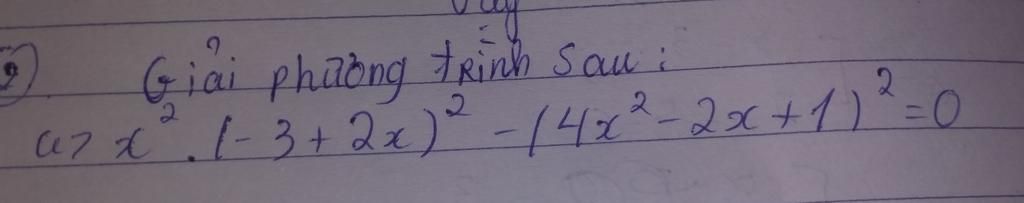 2) Giải phương trình sau:
a> x². (-3 + 2x)² - (4x² - 2x + 1)² = 0